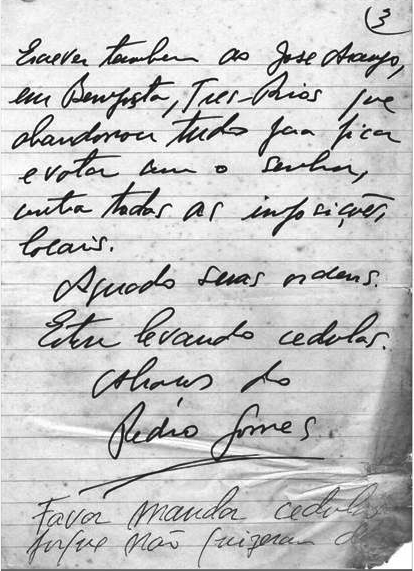 3
Escrever tambem ao José Araujo,
em Bemposta, Tres-Rios que
abandonou tudo para ficar
e votar com o senhor,
contra todas as imposições
locais.
Aguardo suas ordens.
Estou levando cedulas.
Abraços do
Pedro Gomes
Favor mandar cedulas
porque não quizeram